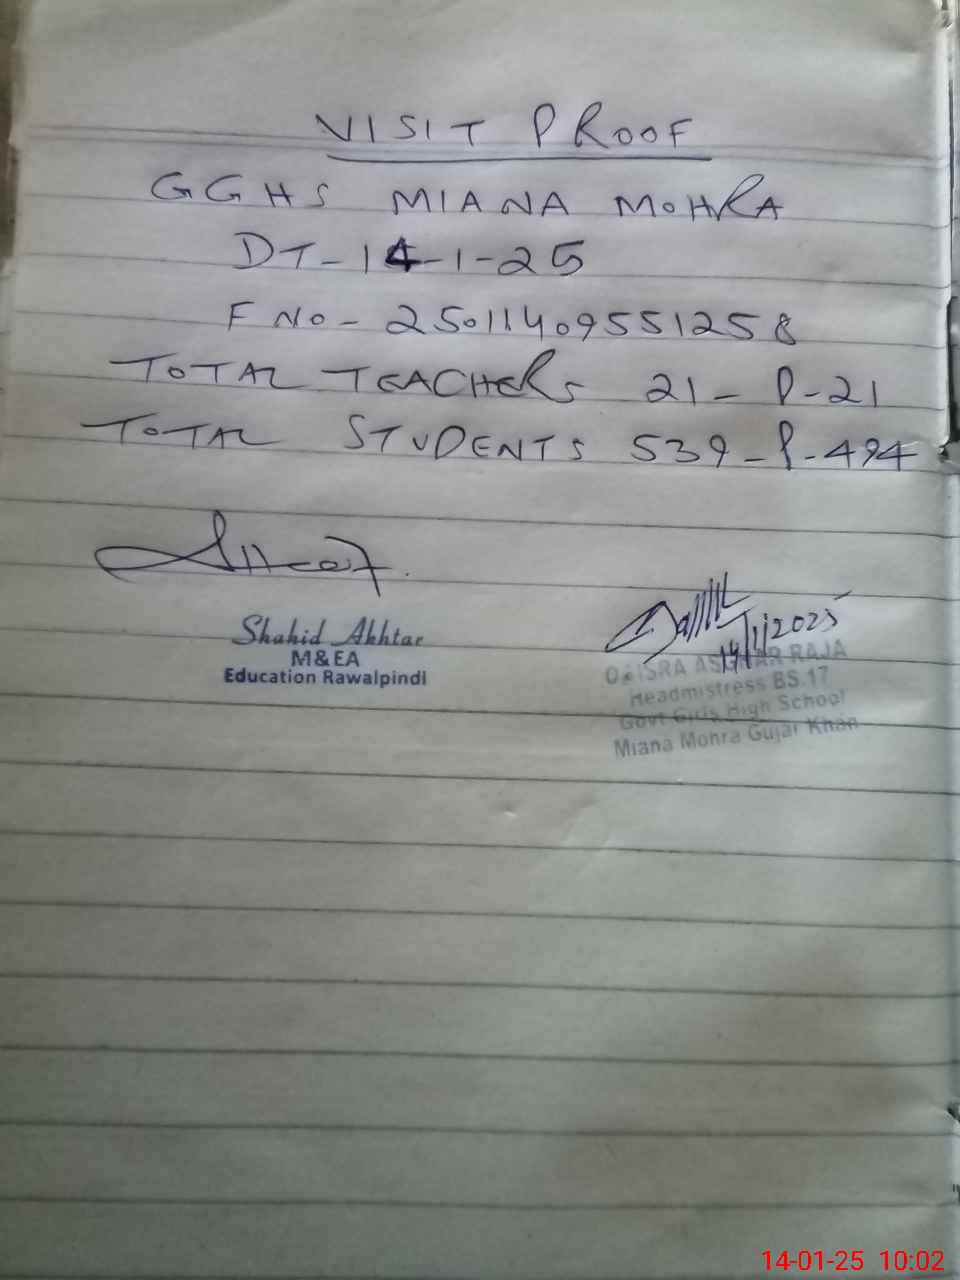 VISIT PROOF
GGHS MIANA MOHRA
DT-14-1-25
F NO- 25011409551258
TOTAL TEACHERS 21- P-21
TOTAL STUDENTS 539-P-494
Shahid Akhtar
M&EA
Education Rawalpindi
14/1/2025
ISRA ASGHAR RAJA
Headmistress BS.17
Govt Girls High School
Miana Mohra Gujar Khan
14-01-25 10:02